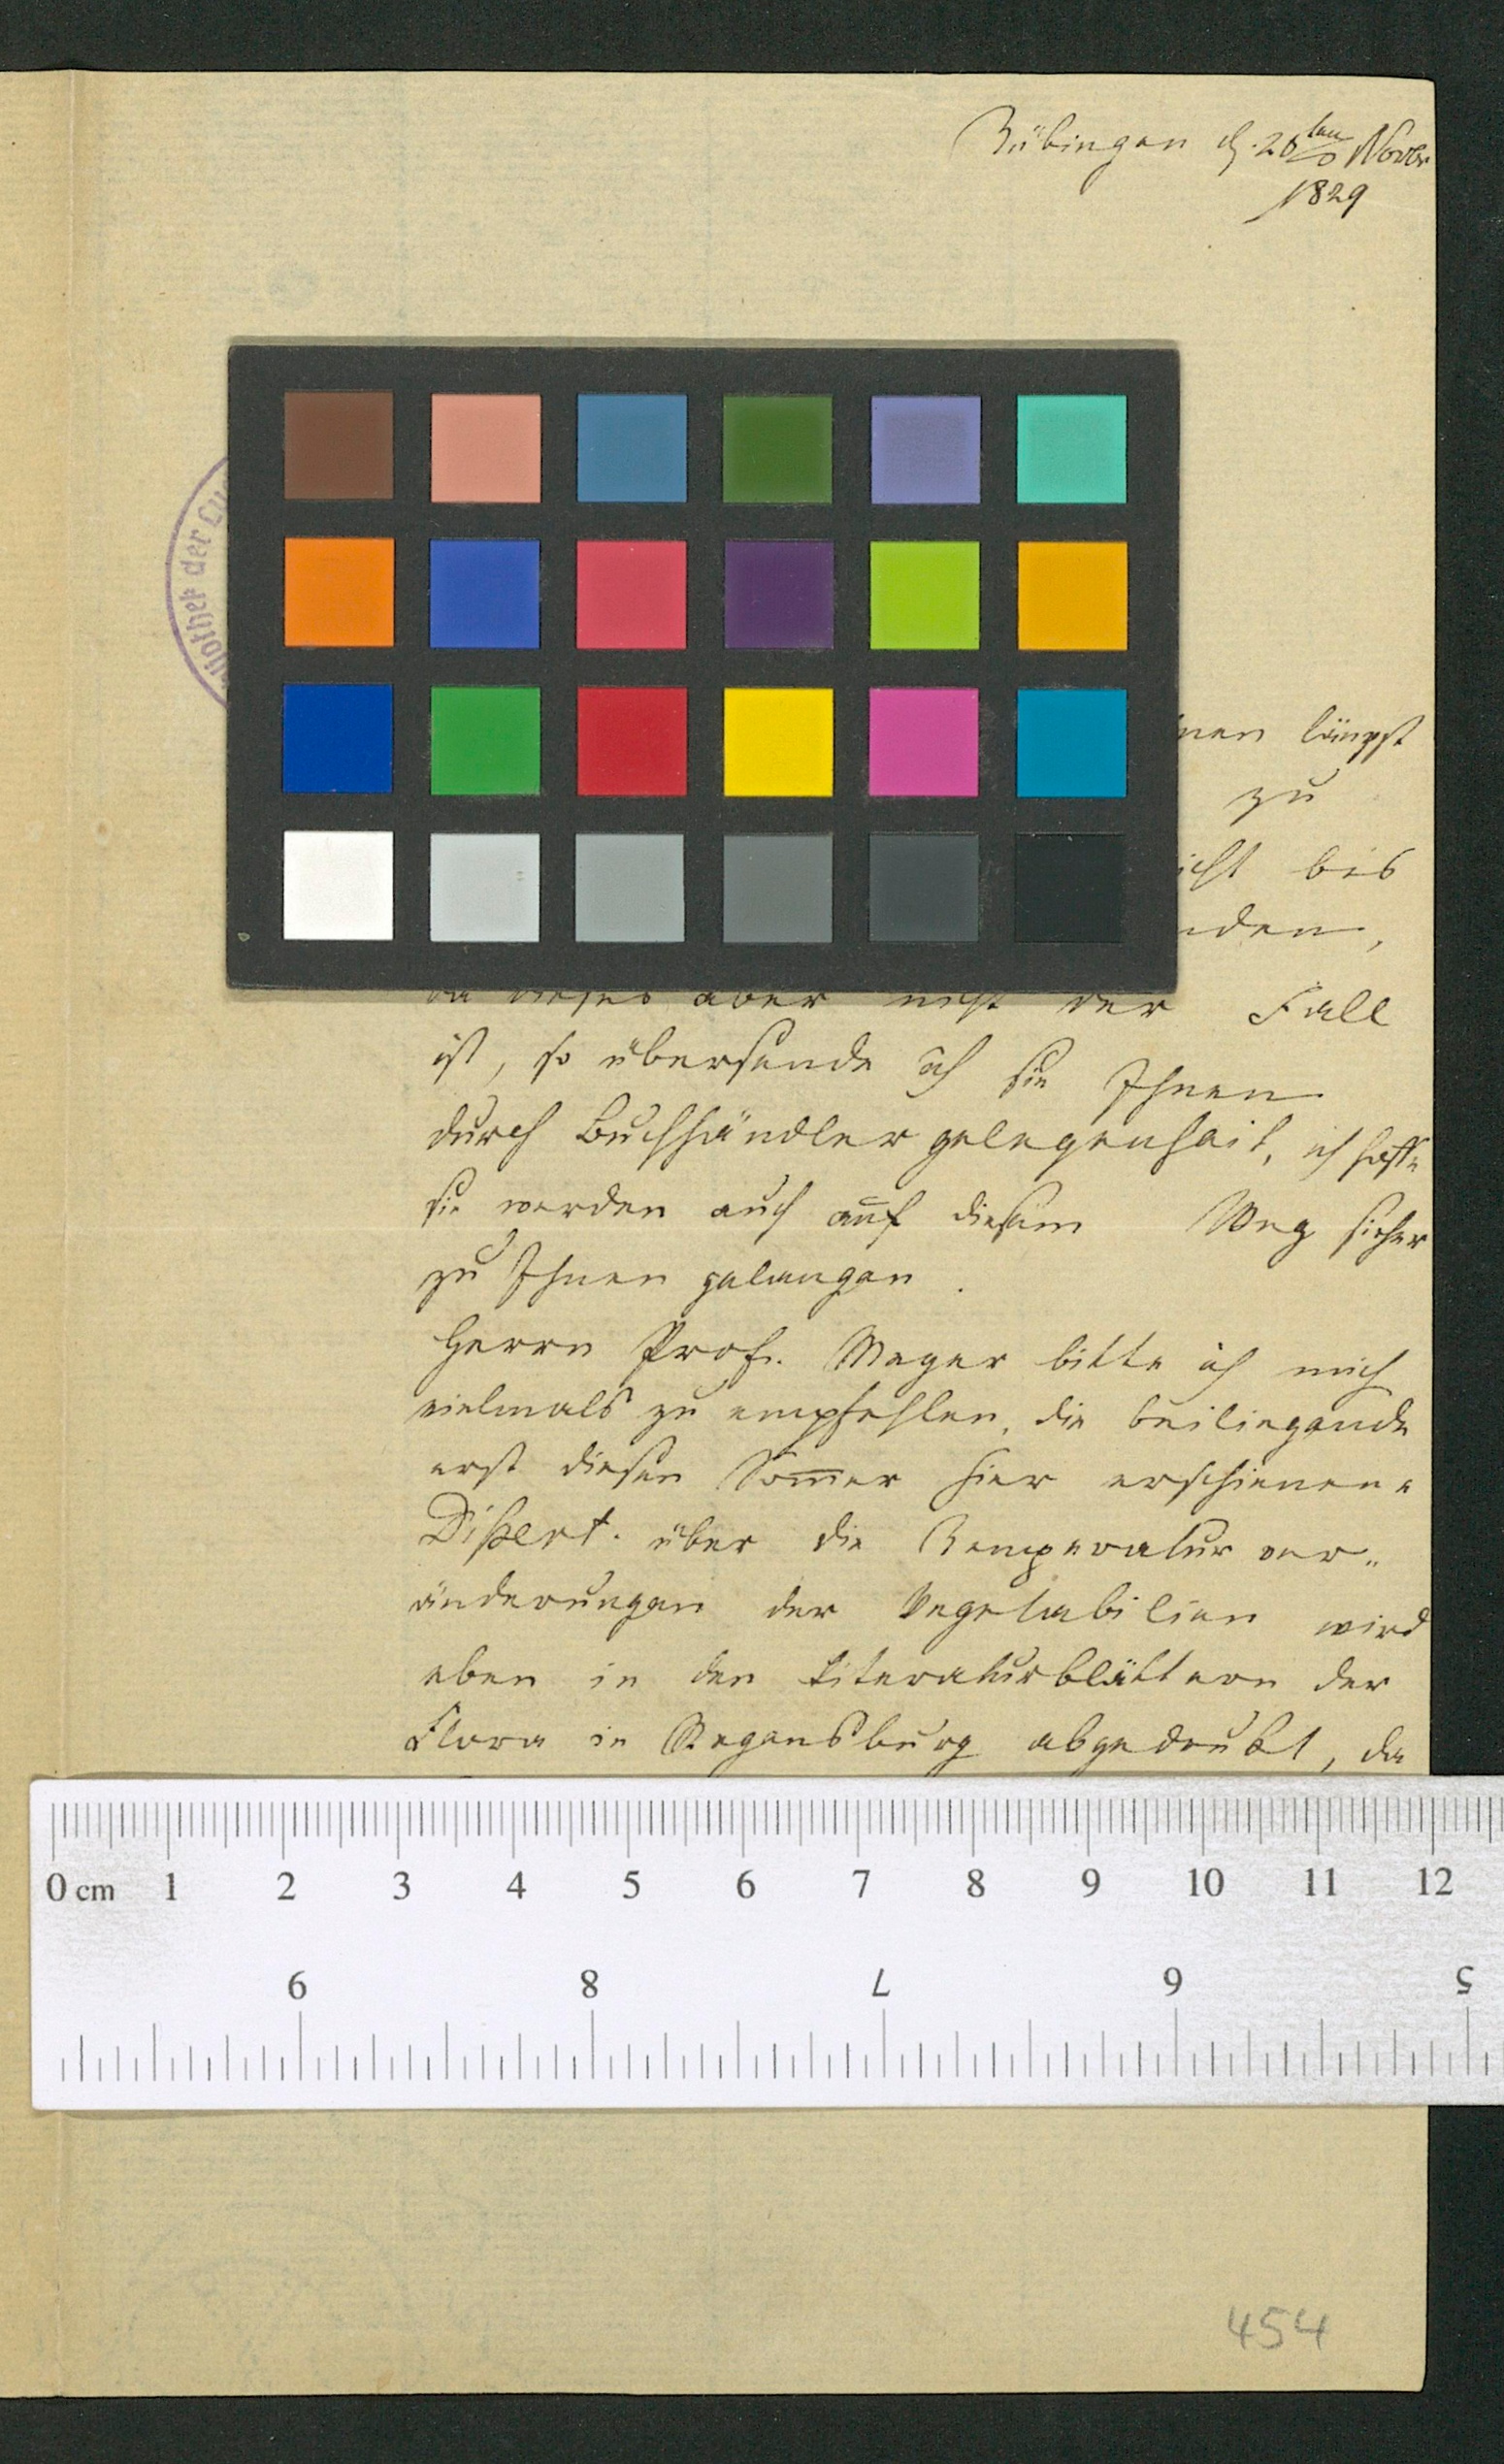 Tübingen d. 26ten Novbr
1829
othek der
längst
zu
bis
da dieses aber nicht der Fall
ist, so übersende ich sie Ihnen
durch Buchhändlergelegenheit, ich hoffe
sie werden auch auf diesem Weg sicher
zu Ihnen gelangen.
Herrn Prof. Mayer bitte ich mich
vielmals zu empfehlen, die beiliegende
erst diesen Som̅er hier erschienene
Dißert. über die Temperatur ver„
änderungen der Vegetabilien wird
eben in den Literaturblättern der
Flora in Regensburg abgedrukt, da
0 cm 1 2 3 4 5 6 7 8 9 10 11 12
9 8 7 6 5
454